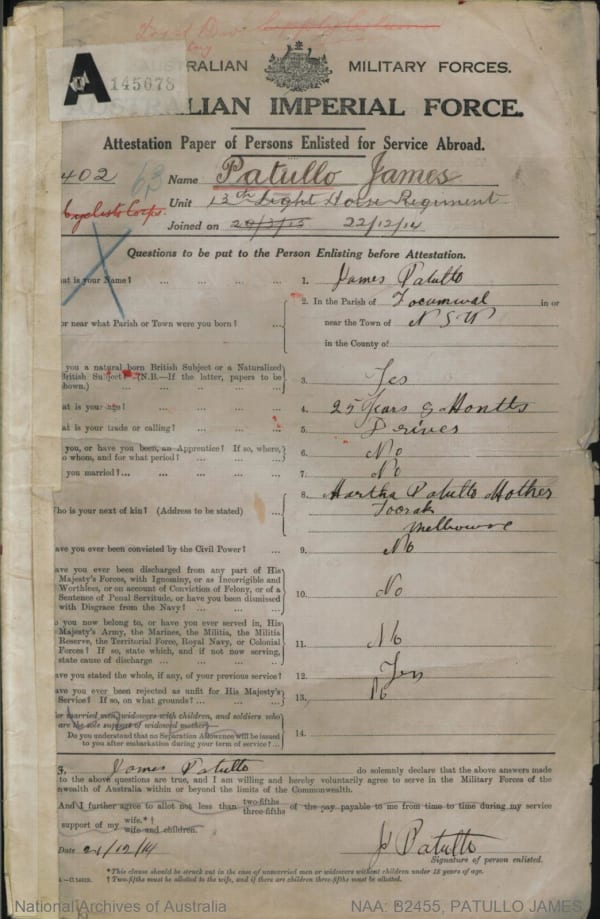 145678
A
AUSTRALIAN MILITARY FORCES.
AUSTRALIAN IMPERIAL FORCE.
Attestation Paper of Persons Enlisted for Service Abroad.
402 63 Name Patullo James
Cyclist Corps. Unit 13th Light Horse Regiment
Joined on 20/3/15 22/12/14
Questions to be put to the Person Enlisting before Attestation.
at is your Name? ... ... 1. James Patullo
2. In the Parish of Tocumwal in or
or near what Parish or Town were you born? ... near the Town of N S W
in the County of
you a natural born British Subject or a Naturalized
British Subject? (N.B.—If the latter, papers to be
shown.) ... ... 3. Yes
at is your age? ... ... 4. 25 Years 9 Months
at is your trade or calling? ... ... 5. Driver
you, or have you been, an Apprentice? If so, where,
o whom, and for what period? ... ... 6. No
you married? ... ... 7. No
8. Martha Patullo Mother
ho is your next of kin? (Address to be stated) ... Toorak
Melbourne
ave you ever been convicted by the Civil Power? ... 9. No
ave you ever been discharged from any part of His
Majesty's Forces, with Ignominy, or as Incorrigible and
Worthless, or on account of Conviction of Felony, or of a
Sentence of Penal Servitude, or have you been dismissed
with Disgrace from the Navy? ... ... 10. No
o you now belong to, or have you ever served in, His
Majesty's Army, the Marines, the Militia, the Militia
Reserve, the Territorial Force, Royal Navy, or Colonial
Forces? If so, state which, and if not now serving,
state cause of discharge ... ... 11. No
ave you stated the whole, if any, of your previous service? 12. Yes
ave you ever been rejected as unfit for His Majesty's
Service? If so, on what grounds? ... ... 13. No
or married men, widowers with children, and soldiers who
are the sole support of widowed mother—
Do you understand that no Separation Allowance will be issued
to you after embarkation during your term of service? ... 14.
3, James Patullo do solemnly declare that the above answers made
to the above questions are true, and I am willing and hereby voluntarily agree to serve in the Military Forces of the
nwealth of Australia within or beyond the limits of the Commonwealth.
And I further agree to allot not less than two-fifths three-fifths of the pay payable to me from time to time during my service
support of my wife.*† wife and children.
Date 21/12/14 J Patullo
Signature of person enlisted.
*This clause should be struck out in the case of unmarried men or widowers without children under 18 years of age.
† Two-fifths must be allotted to the wife, and if there are children three-fifths must be allotted.
National Archives of Australia NAA: B2455, PATULLO JAMES